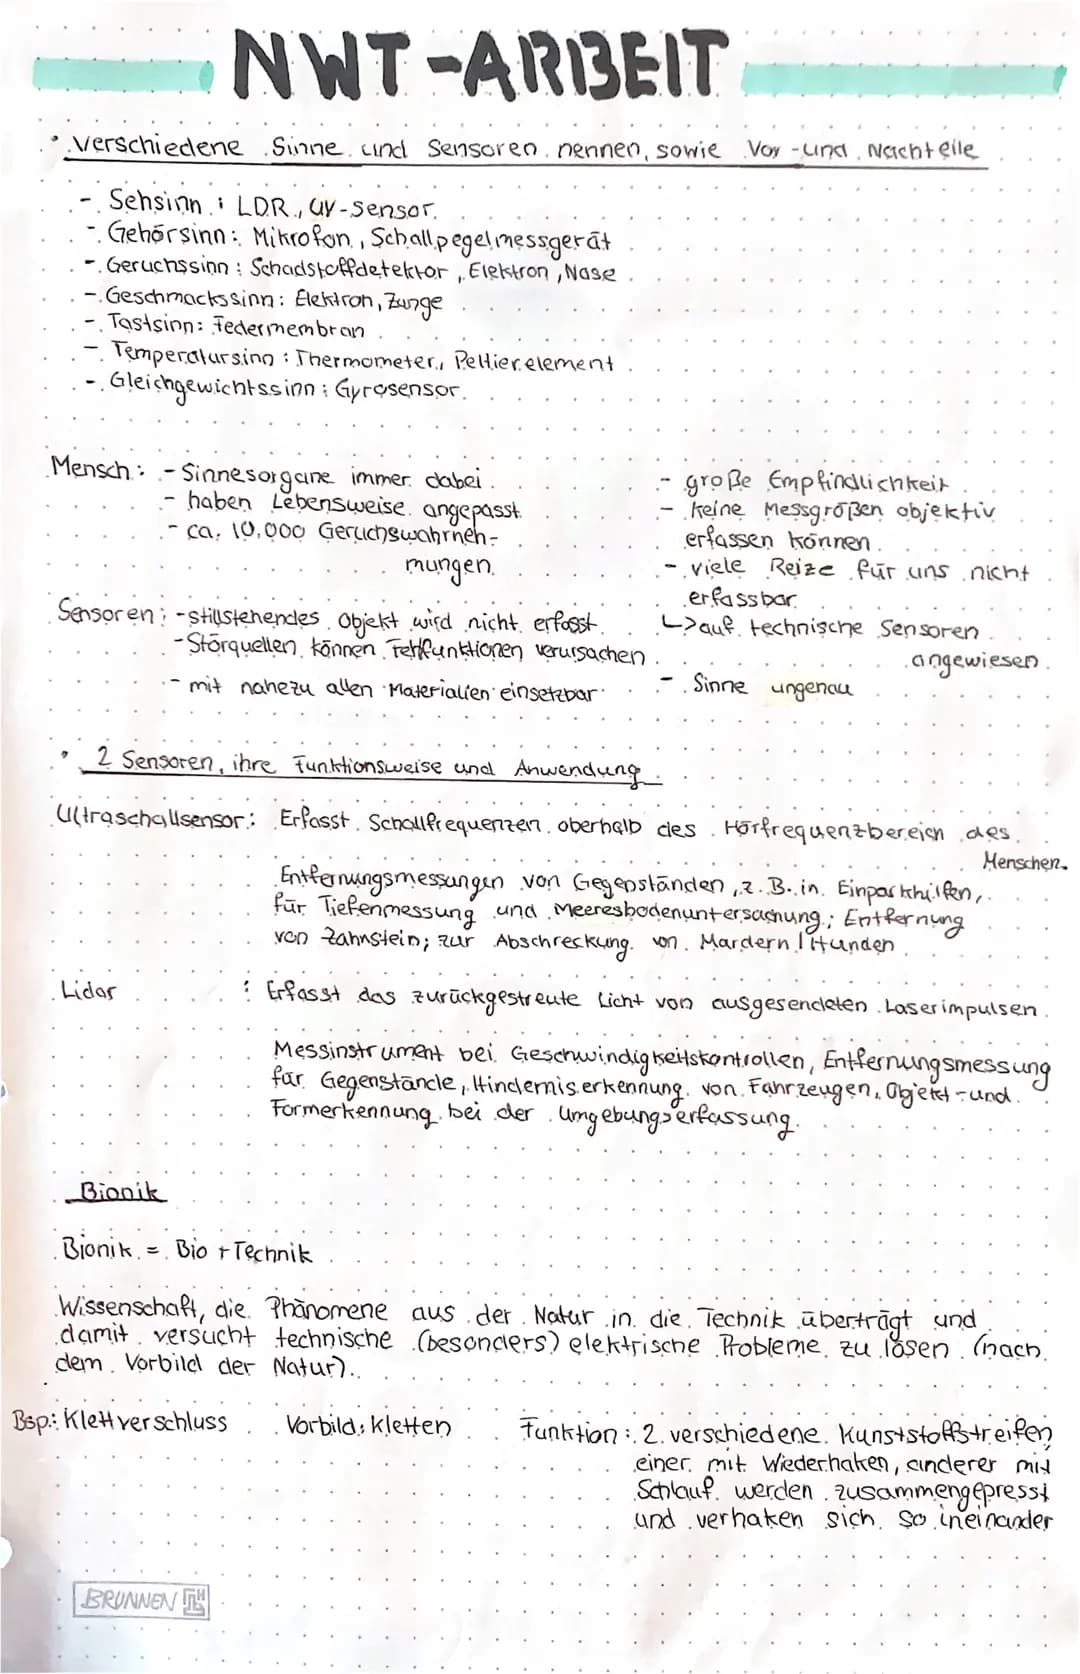 NWT-ARBEIT
• Verschiedene Sinne und Sensoren nennen, sowie Vor-und Nachteile
- Sehsinn: LDR, UV-Sensor
- Gehörsinn: Mikrofon, Schallpegelmessgerät
- Geruchssinn: Schadstoffdetektor, Elektron, Nase
- Geschmackssinn: Elektron, Zunge
- Tastsinn: Federmembran
- Temperatursinn: Thermometer, Peltierelement
- Gleichgewichtssinn: Gyrosensor
Mensch: - Sinnesorgane immer dabei
- haben Lebensweise angepasst
- ca. 10.000 Geruchswahrneh-
mungen
- große Empfindlichkeit
- keine Messgrößen objektiv
erfassen können
- viele Reize für uns nicht
erfassbar
↳ auf technische Sensoren
angewiesen
- Sinne ungenau
Sensoren: - stillstehendes Objekt wird nicht erfasst
- Störquellen können Fehlfunktionen verursachen
- mit nahezu allen Materialien einsetzbar
• 2 Sensoren, ihre Funktionsweise und Anwendung
Ultraschallsensor: Erfasst Schallfrequenzen oberhalb des Hörfrequenzbereich des
Menschen.
Entfernungsmessungen von Gegenständen, z.B. in Einparkhilfen,
für Tiefenmessung und Meeresbodenuntersuchung; Entfernung
von Zahnstein; zur Abschreckung von Mardern/Hunden
Lidar : Erfasst das zurückgestreute Licht von ausgesendeten Laserimpulsen.
Messinstrument bei Geschwindigkeitskontrollen, Entfernungsmessung
für Gegenstände, Hinderniserkennung von Fahrzeugen, Objekt-und
Formerkennung bei der Umgebungserfassung.
Bionik
Bionik = Bio + Technik
Wissenschaft, die Phänomene aus der Natur in die Technik überträgt und
damit versucht technische (besonders) elektrische Probleme zu lösen (nach
dem Vorbild der Natur).
Bsp.: Klettverschluss Vorbild: Kletten Funktion: 2 verschiedene Kunststoffstreifen
einer mit Wiederhaken, anderer mit
Schlauf werden zusammengepresst
und verhaken sich so ineinander
BRUNNEN